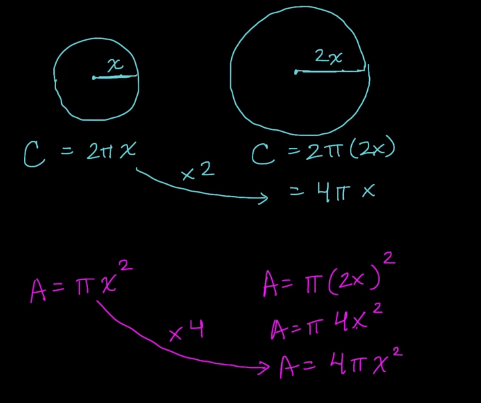 x
2x
C = 2πx
C = 2π(2x)
x2
= 4πx
A = πx²
A = π(2x)²
A = π4x²
x4
A = 4πx²